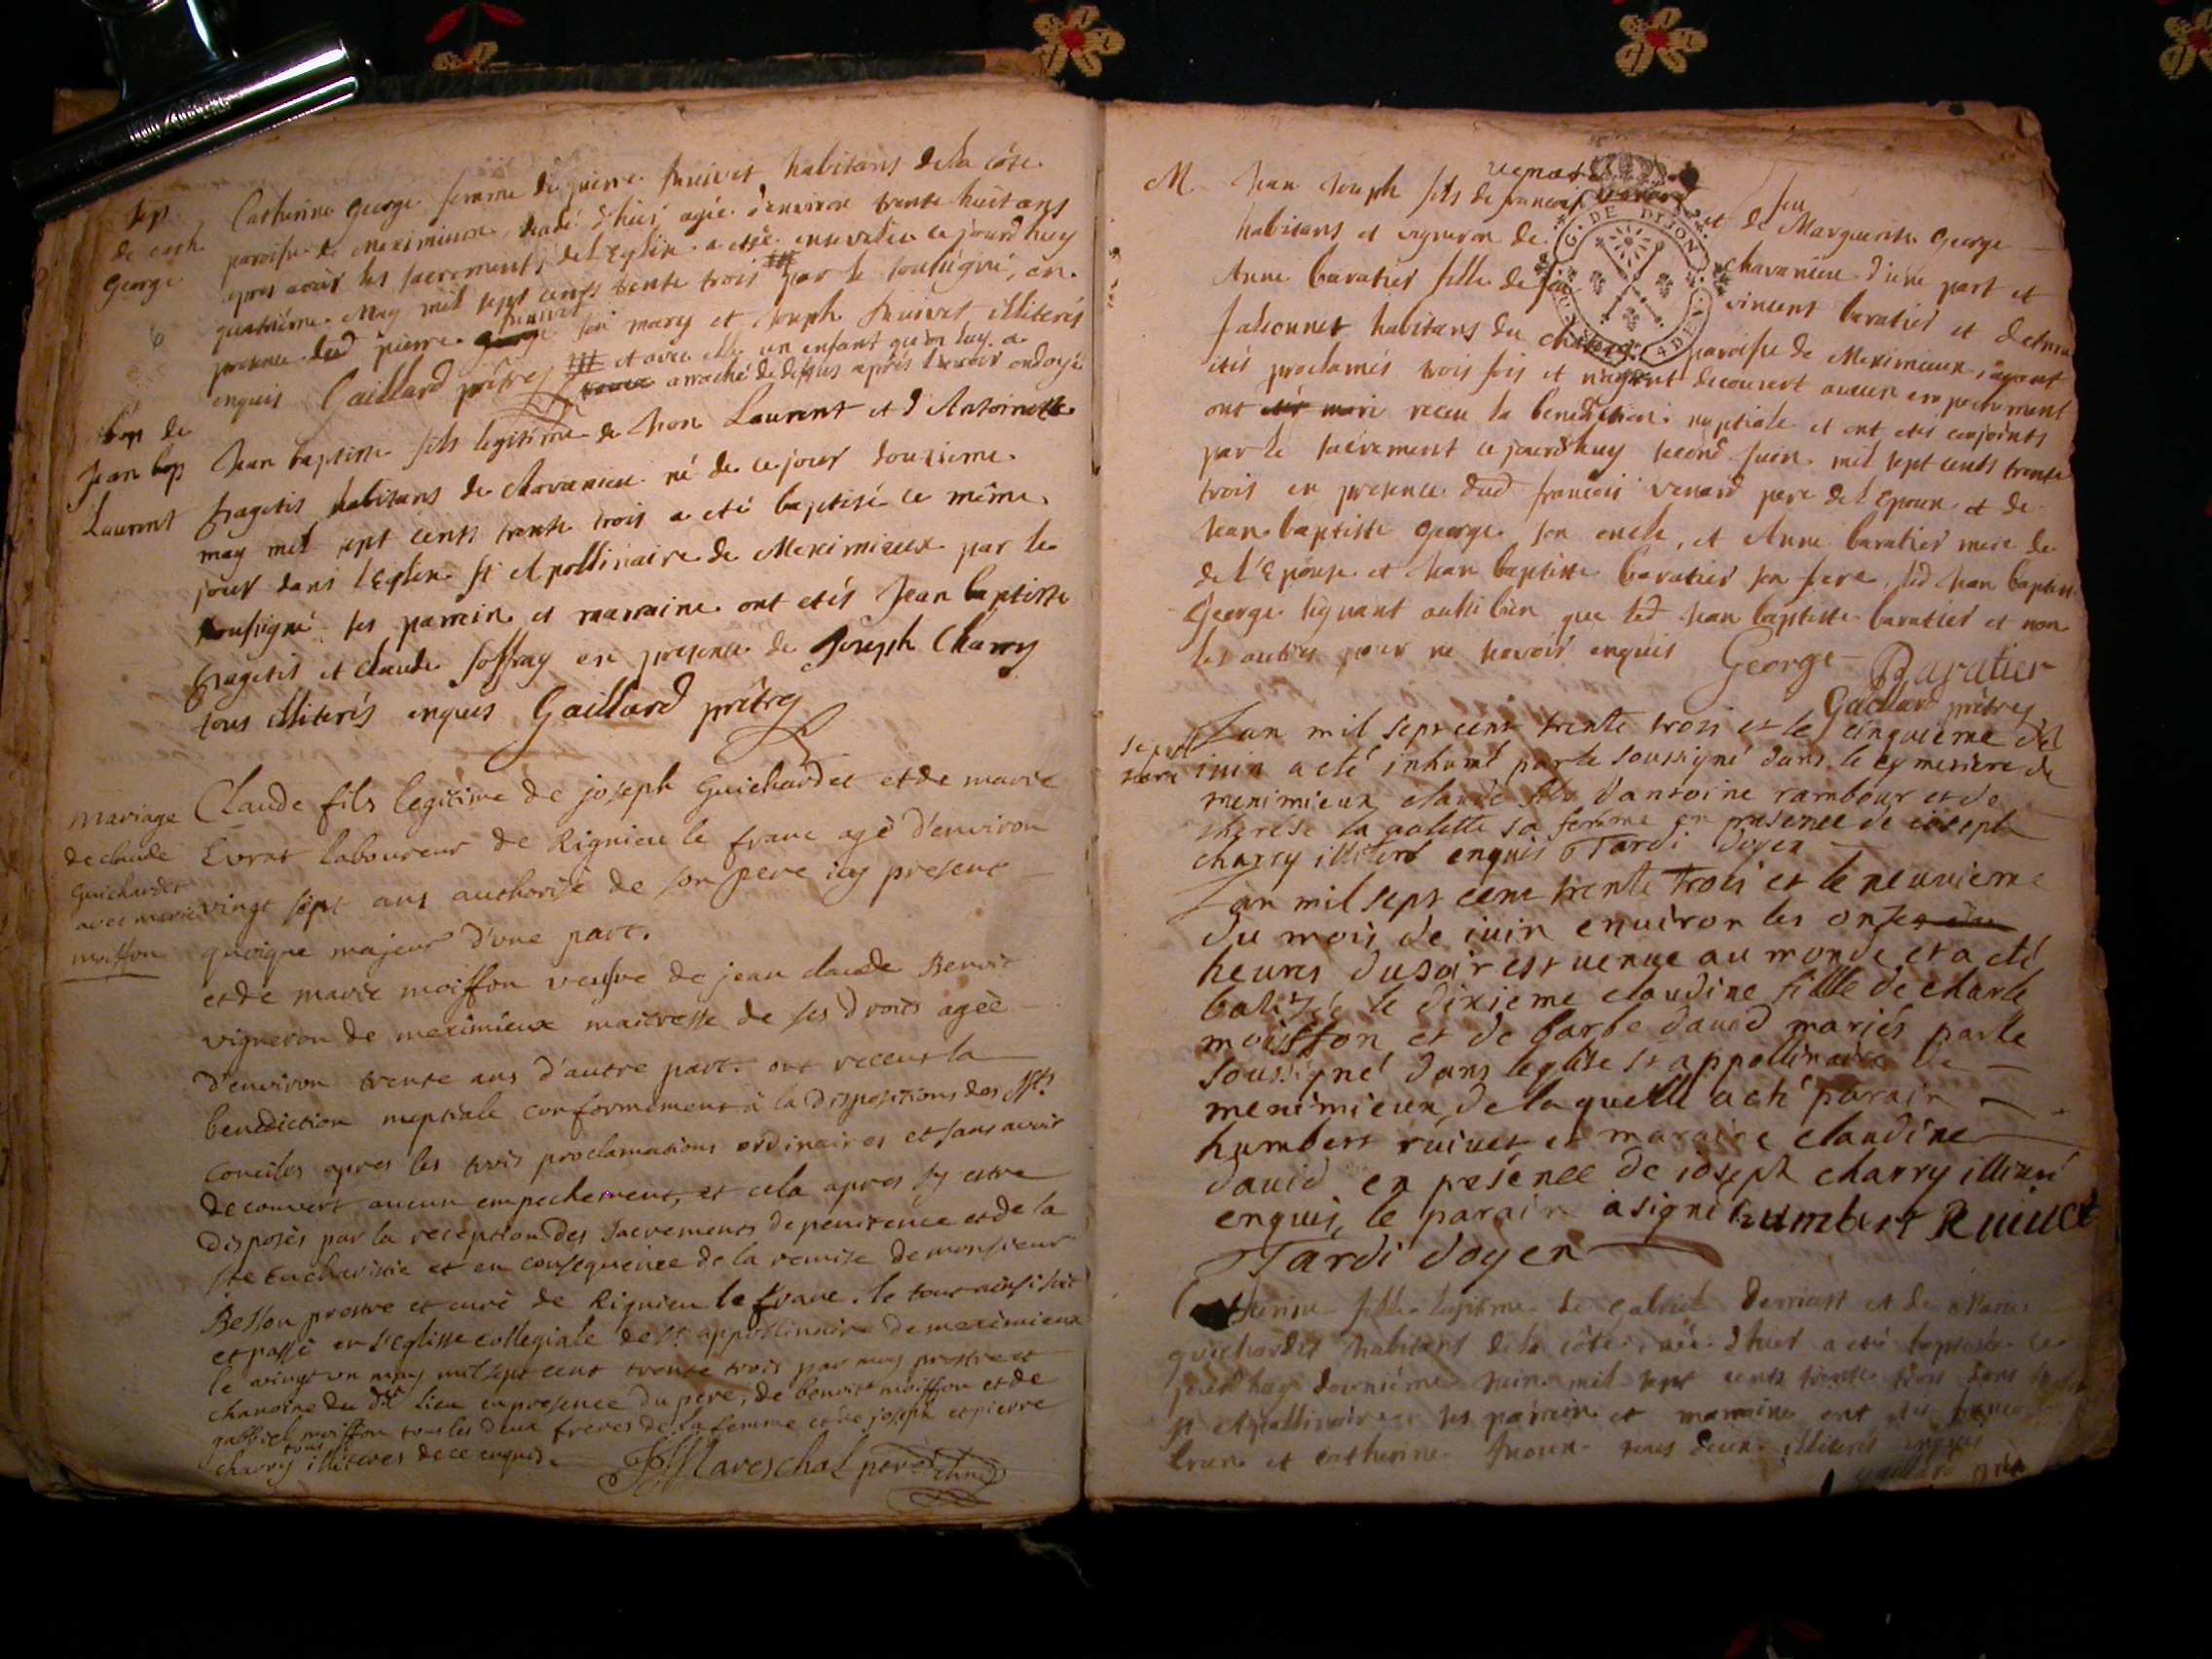 Sep.
de cath
George
Catherine George femme de pierre Ruivet habitans de la côte
paroisse de Meximieux, decedé d'hier agée d'environ trente huit ans
apres avoir les sacrements de l'Eglise a etté ensevelie ce jourd'huy
quatrième May mil sept cents trente trois par le soussigné, en
presence dud pierre Ruivet son mary et Joseph Ruivet illiterés
enquis Gaillard prêtre et avec elle un enfant qu'on luy a
arraché de dessus après l'avoir ondoyé
bap de
Jean bap
Laurent
Jean baptiste fils legitime de Jean Laurent et d'Antoinette
fragetis habitans de Chavanieu né de ce jour douzieme
may mil sept cents trente trois a eté baptisé ce même
jour dans l'Eglise St Apollinaire de Meximieux par le
soussigné ses parrein et marraine ont etés Jean baptiste
fragetis et claude Joffray en presence de Joseph Charry
tous illiterés enquis Gaillard prêtre
mariage
de claude
Guichardet
avec marie
moiffon
Claude fils legitime de joseph Guichardet et de marie
Evrat laboureur de Rignieu le franc agé d'environ
vingt sept ans authorisé de son pere icy present
quoique majeur d'une part.
et de marie moiffon veufve de jean claude Benoit
vigneron de meximieux maitresse de ses droits agée
d'environ trente ans d'autre part. ont receut la
benediction nuptiale conformement à la dispositions des Sts
Conciles apres les trois proclamations ordinaires et sans avoir
decouvert aucun empechement, et cela apres sy estre
disposés par la reception des Sacrements de penitence et de la
Ste Eucharistie et en consequence de la remise de monsieur
Besson prestre et curé de Rignieu le franc. le tout ainsi fait
et passé en l'eglisse collegiale de St appollinaire de meximieux
le vingt un may mil sept cent trente trois par moy prestre et
chanoine du dt lieu en presence du pere, de benoit moiffon et de
gabriel moiffon tous les deux freres de la femme et de joseph et pierre
charry tous illiteres de ce enquis. Mareschal
M.
Jean Joseph fils de francois venard et de feu Marguerite George
habitans et vigneron de chavanieu d'une part et
Anne baratier fille de feu vincent baratier et
habitans du paroisse de Meximieux, ayant
etés proclamés trois fois et n'ayant decouvert aucun empechement
ont receu la benediction nuptiale et ont etés conjoints
par le sacrement ce jourd'huy second Juin mil sept cents trente
trois en presence dud francois venard pere de l'Epoux et de
Jean baptiste George son oncle, et Anne baratier mere de
de l'Epouse et Jean baptiste baratier son frere, led Jean baptiste
George signant aussi bien que led Jean baptiste baratier et non
les autres pour ne scavoir enquis George Baratier
Gaillard prêtre
sepul
ture
Lan mil sept cent trente trois et le cinquieme de
iuin a eté inhumé par le soussigné dans le cymetiere de
meximieux claude fils d'antoine rambour et de
therese la sa femme en presence de ioseph
charry illiteré enquis Tardi doyen
Lan mil sept cent trente trois et le neuvieme
du mois de iuin environ les onze
heures du soir est venue au monde et a eté
batizée le dixieme claudine fille de charle
moiffon et de barbe david mariés par le
soussigné dans leglise st appollinaire de
meximieux de laquelle a eté parain
humbert ruivet et maraine claudine
david en presence de ioseph charry illiteré
enquis, le parain a signé humbert Ruivet
Tardi doyen
Catherine fille legitime de Gabriel et de Marie
guichardet habitans de la côte, née d'hier a eté baptisée ce
jourd'huy dernième Juin mil sept cents trente trois dans
St Apollinaire ses parrein et marraine ont etés
et catherine tous deux illiterés enquis
Gaillard prêtre
G. DE DIJON